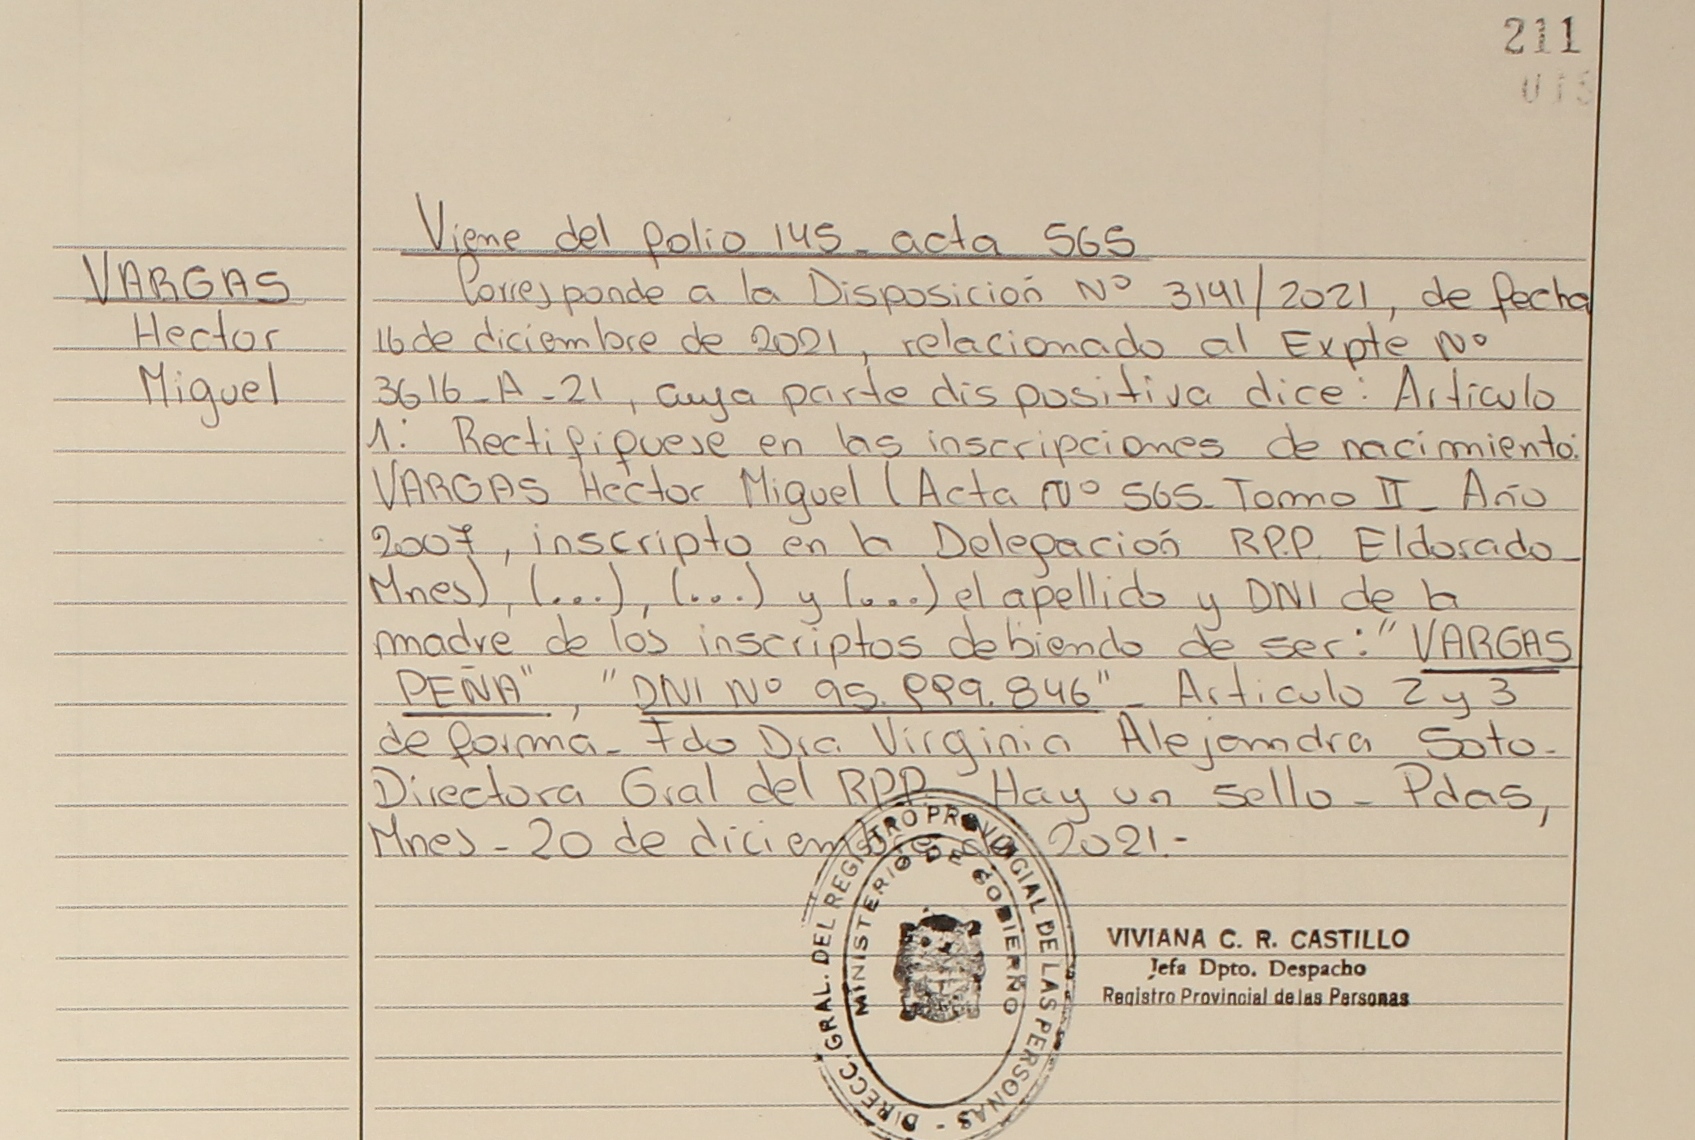 211
Viene del folio 145_ acta 565
VARGAS
Hector
Miguel
Corresponde a la Disposición Nº 3141/2021, de fecha
16 de diciembre de 2021, relacionado al Expte Nº
3616_A_21, cuya parte dispositiva dice: Artículo
1: Rectifiquese en las inscripciones de nacimiento:
VARGAS Hector Miguel (Acta Nº 565_ Tomo II_ Año
2007, inscripto en la Delegación R.P.P. Eldorado_
Mnes), (...), (...) y (...) el apellido y DNI de la
madre de los inscriptos debiendo de ser: "VARGAS
PEÑA", "DNI Nº 95.999.846"_ Articulo 2 y 3
de forma_ Fdo Dra. Virginia Alejandra Soto_
Directora Gral del RPP. Hay un sello_ Pdas,
Mnes_ 20 de diciembre de 2021.-
DIRECC. GRAL. DEL REGISTRO PROVINCIAL DE LAS PERSONAS -
MINISTERIO DE GOBIERNO
VIVIANA C. R. CASTILLO
Jefa Dpto. Despacho
Registro Provincial de las Personas